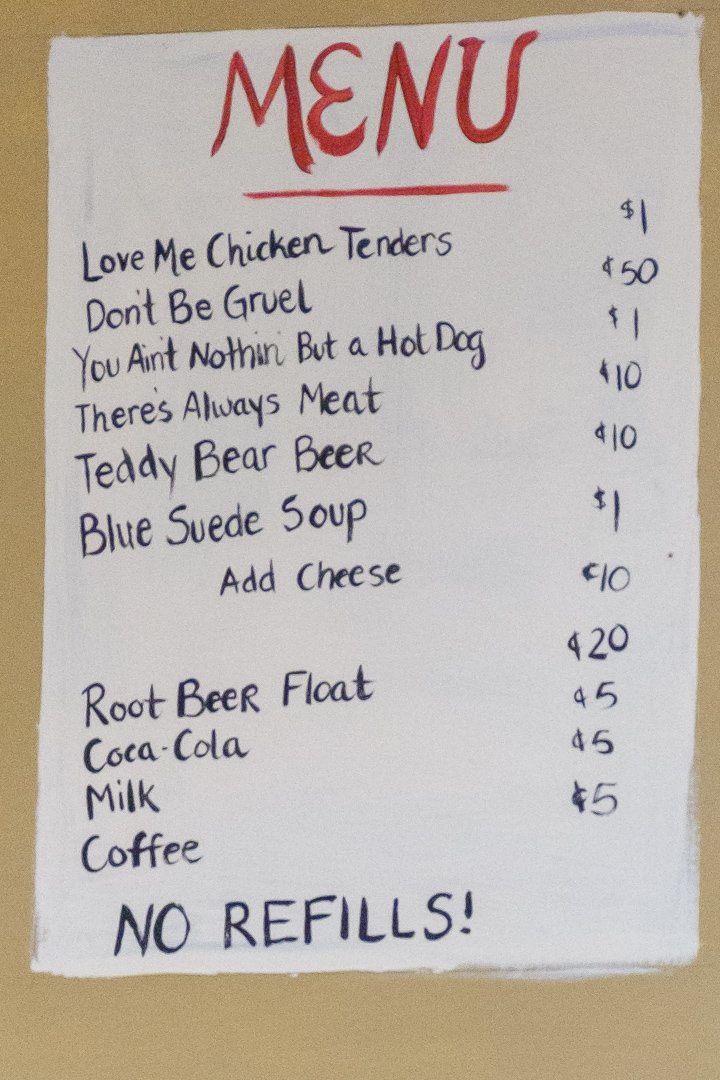 MENU
Love Me Chicken Tenders $1
Don't Be Gruel ¢50
You Ain't Nothin' But a Hot Dog $1
There's Always Meat ¢10
Teddy Bear Beer ¢10
Blue Suede Soup $1
Add Cheese ¢10
Root Beer Float ¢20
Coca-Cola ¢5
Milk ¢5
Coffee ¢5
NO REFILLS!